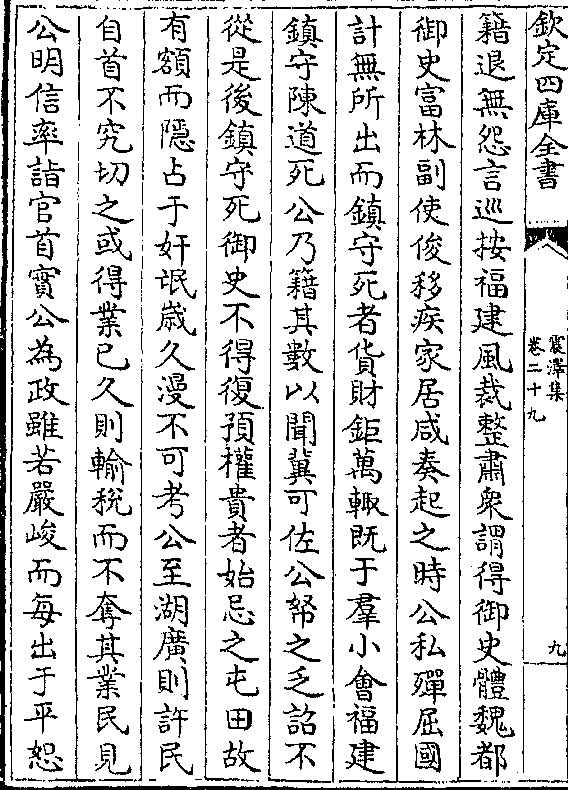 欽定四庫全書
震澤集
卷二十九
九
籍退無怨言巡按福建風裁整肅衆謂得御史體魏都
御史富林副使俊移疾家居咸奏起之時公私殫屈國
計無所出而鎮守死者貨財鉅萬輙既于羣小會福建
鎮守陳道死公乃籍其數以聞冀可佐公帑之乏詔不
從是後鎮守死御史不得復預權貴者始忌之屯田故
有額而隱占于奸氓嵗久漫不可考公至湖廣則許民
自首不究切之或得業已久則輸稅而不奪其業民見
公明信率詣官首實公為政雖若嚴峻而每出于平恕